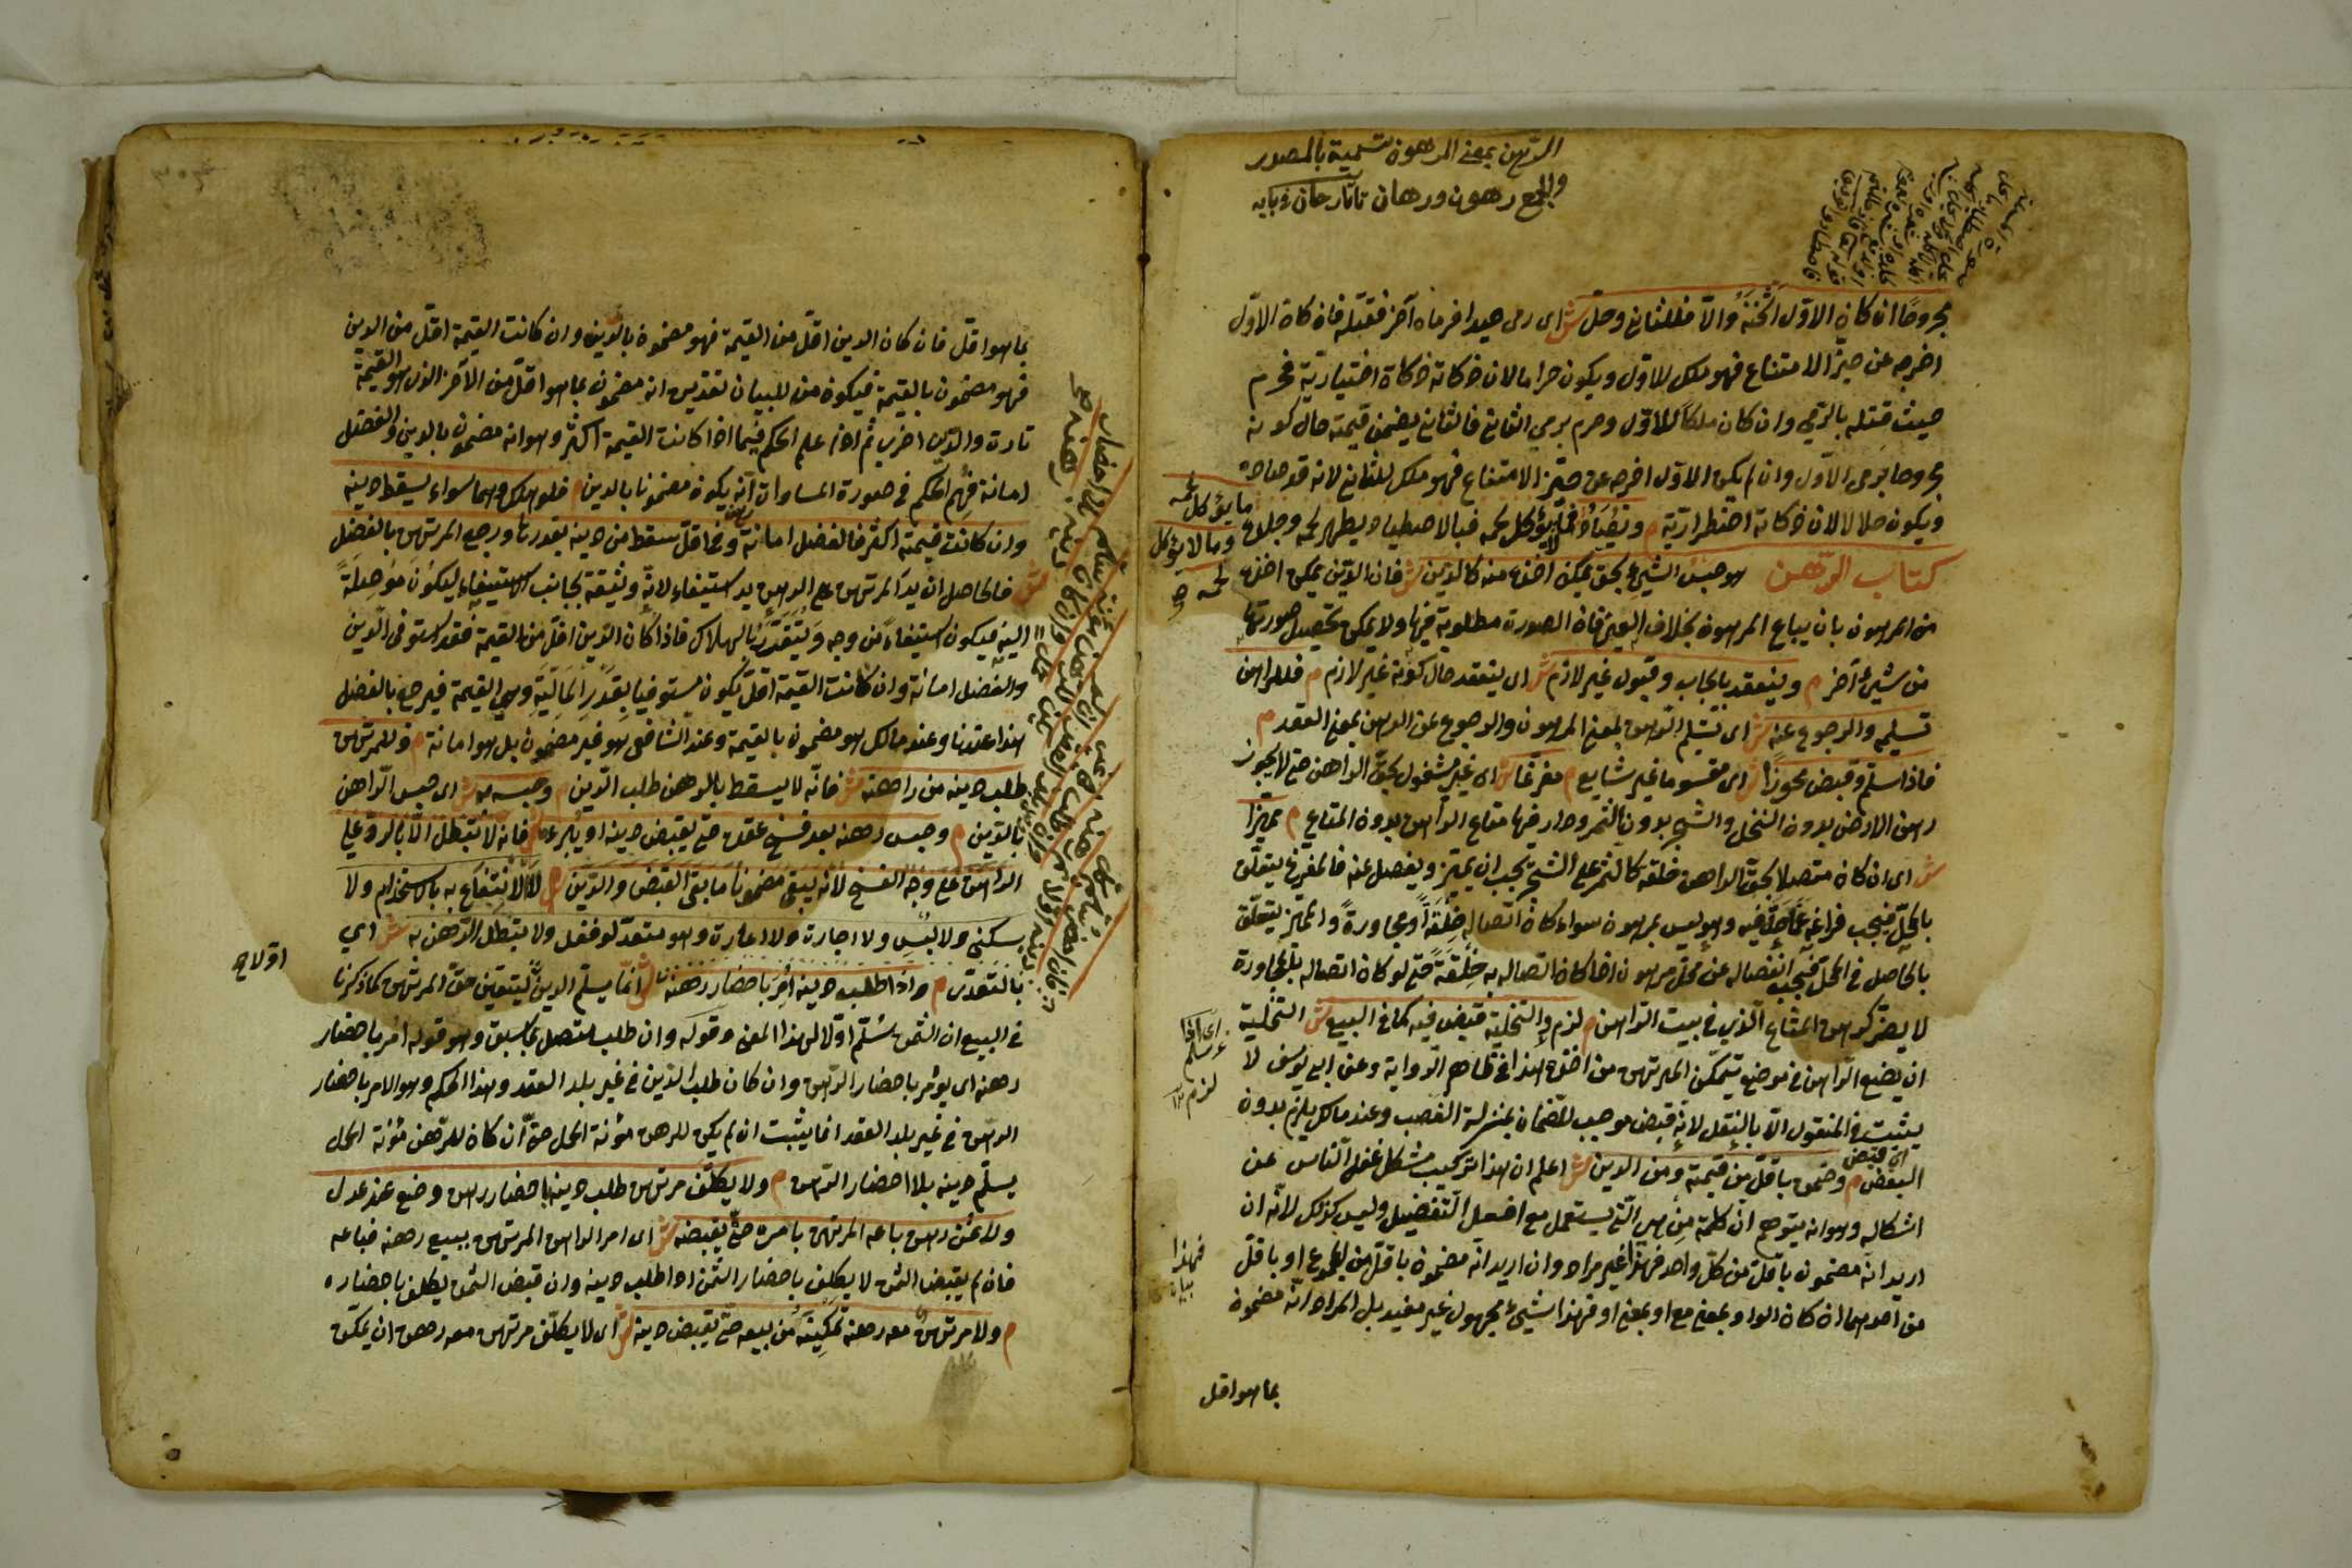 الرهن بمعنى المرهون تسمية بالمصدر
والجمع رهون ورهان تاتارخان في بابه
مجروحا ان كان الاول اثخنه والا فللثاني وحل ش اى رمى صيدا فرماه آخر فقتله فان كان الاول
اخرجه عن حيز الامتناع فهو ملك للاول ويكون حراما لان ذكاته ذكاة اختيارية فحرم
حيث قتله بالرمي وان كان ملكا للاول وحرم برمي الثاني فالثاني يضمن قيمته حال كونه
مجروحا برمى الاول وان لم يكن الاول اخرجه عن حيز الامتناع فهو ملك للثاني لانه قد صاده
ويكون حلالا لان ذكاته اضطرارية م ويصاد ما يؤكل لحمه وما لا يؤكل لحمه فبالاصطياد يطهر لحمه وجلده
كتاب الرهن هو حبس الشيء بحق يمكن اخذه منه كالدين ش فان الدين يمكن اخذه
من المرهون بان يباع المرهون بخلاف العين فان الصورة مطلوبة فيها ولا يمكن تحصيل صورتها
من شيء آخر م وينعقد بايجاب وقبول غير لازم ش اى ينعقد حال كونه غير لازم م فللراهن
تسليمه والرجوع عنه ش اى تسليم الرهن بمعنى المرهون والرجوع عن الرهن بمعنى العقد م
فاذا سلم وقبض محوزا ش اى مقسوما غير شايع م مفرغا ش اى غير مشغول بحق الراهن حتى لا يجوز
رهن الارض بدون النخل والشجر بدون الثمر ودار فيها متاع الراهن بدون المتاع م مميزا
ش اى ان كان متصلا بحق الراهن خلقة كالثمر على الشجر يجب ان يميز ويفصل عنه فالمفرغ يتعلق
بالمحل فيجب فراغه عما حل فيه وهو ليس بمرهون سواء كان اتصاله خلقة او مجاورة والمميز يتعلق
بالحاصل في المحل فيجب انفصاله عن محل مرهون اذا كان اتصاله به خلقة حتى لو كان اتصاله بالمجاورة
لا يضر كرهن المتاع الذي في بيت الراهن م لزم والتخلية قبض فيه كما في البيع ش التخلية
ان يضع الراهن في موضع يتمكن المرتهن من اخذه هذا في ظاهر الرواية وعن ابي يوسف لا
يثبت في المنقول الا بالنقل لانه قبض موجب للضمان بمنزلة الغصب وعند مالك يلزم بدون
القبض م وضمن باقل من قيمته ومن الدين ش اعلم ان هذا تركيب مشكل غفل الناس عن
اشكاله وهو انه يتوهم ان كلمة من هي التي يستعمل مع افعل التفضيل وليس كذلك لانه ان
اريد انه مضمون باقل من كل واحد فهذا غير مراد وان اريد انه مضمون باقل من المجموع او باقل
من احدهما ان كان الواو بمعنى مع او بمعنى او فهذا شيء مجهول غير مفيد بل المراد انه مضمون
بما هو اقل
بما هو اقل فان كان الدين اقل من القيمة فهو مضمون بالدين وان كانت القيمة اقل من الدين
فهو مضمون بالقيمة فيكون من للبيان تقديره انه مضمون بما هو اقل من الآخر الذي هو القيمة
تارة والدين اخرى ثم اذا علم الحكم فيما اذا كانت القيمة اكثر وهو انه مضمون بالدين والفضل
امانة فهم الحكم في صورة المساواة انه يكون مضمونا بالدين م فلو هلك وهما سواء يسقط دينه
وان كانت قيمته اكثر فالفضل امانة وفي اقل سقط من دينه بقدرها ورجع المرتهن بالفضل
ش فالحاصل ان يد المرتهن على الرهن يد استيفاء لانه وثيقة لجانب الاستيفاء ليكون موصلة
اليه فيكون استيفاء من وجه ويتقرر بالهلاك فاذا كان الدين اقل من القيمة فقد استوفى الدين
والفضل امانة وان كانت القيمة اقل يكون مستوفيا بقدر المالية وهي القيمة فيرجع بالفضل
هذا عندنا وعند مالك هو مضمون بالقيمة وعند الشافعي هو غير مضمون بل هو امانة م وللمرتهن
طلب دينه من راهنه ش فانه لا يسقط بالرهن طلب الدين م وحبسه به ش اى حبس الراهن
بالدين م وحبس رهنه بعد فسخ عقده حتى يقبض دينه او يبرءه ش فانه لا يبطل الا بالرد على
الراهن على وجه الفسخ لانه يبقى مضمونا ما بقى القبض والدين م لا الانتفاع به باستخدام ولا
سكنى ولا لبس ولا اجارة ولا اعارة وهو متعد لو فعل ولا يبطل الرهن به ش اي
بالتعدى م واذا طلب دينه امر باحضار رهنه ش انما يسلم الدين ليتعين حق المرتهن كما ذكرنا
اولا
في البيع ان الثمن يسلم اولا لهذا المعنى وقوله وان طلب متصل بما سبق وهو قوله امر باحضار
رهنه اى يؤمر باحضار الرهن وان كان طلب الدين في غير بلد العقد وهذا الحكم وهو الامر باحضار
الرهن في غير بلد العقد انما يثبت ان لم يكن للرهن مؤنة الحمل حتى ان كان للرهن مؤنة الحمل
يسلم دينه بلا احضار الرهن م ولا يكلف مرتهن طلب دينه باحضار رهن وضع عند عدل
ولا ثمن رهن باعه المرتهن بامره حتى يقبضه ش اى امر الراهن المرتهن ببيع رهنه فباعه
فان لم يقبض الثمن لا يكلف باحضار الثمن اذا طلب دينه وان قبض الثمن يكلف باحضاره
م ولا مرتهن معه رهنه تمكينه من بيعه حتى يقبض دينه ش اى لا يكلف مرتهن معه رهن ان يمكن